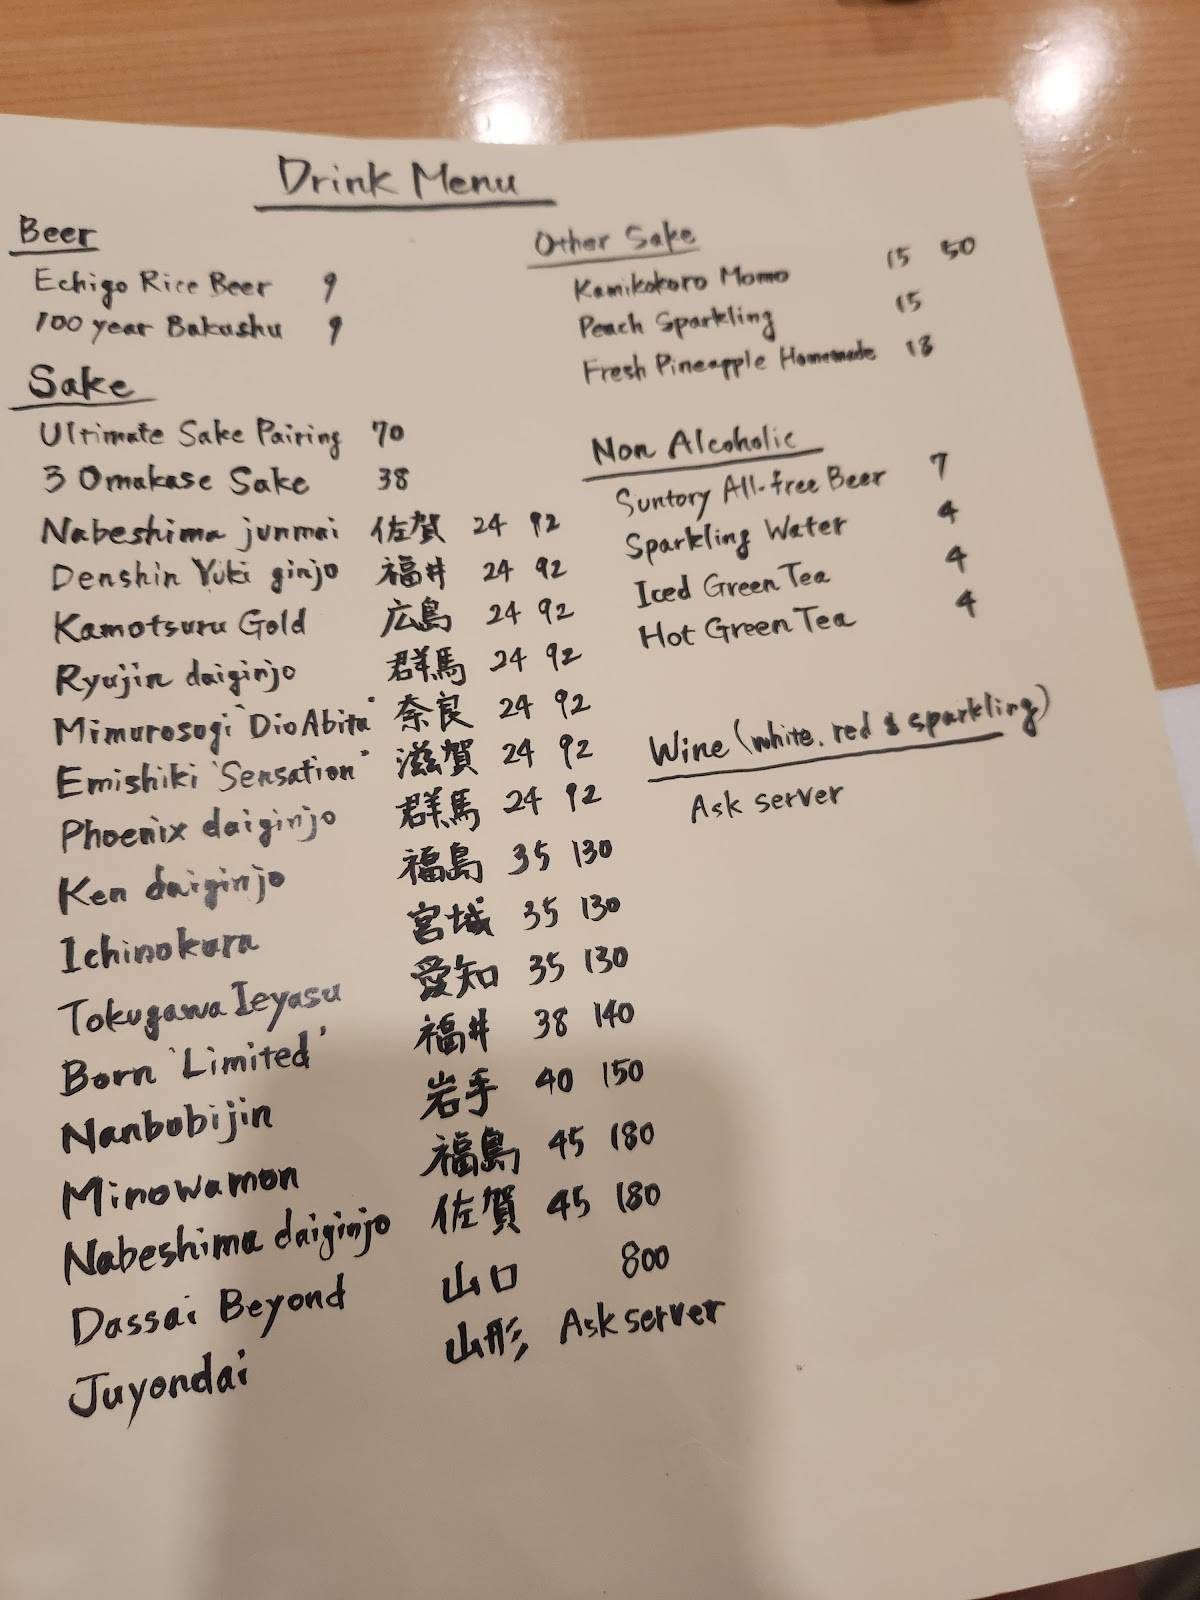 Drink Menu
Beer
Echigo Rice Beer 9
100 year Bakushu 9
Sake
Ultimate Sake Pairing 70
3 Omakase Sake 38
Nabeshima junmai 佐賀 24 92
Denshin Yuki ginjo 福井 24 92
Kamotsuru Gold 広島 24 92
Ryujin daiginjo 群馬 24 92
Mimurosogi "Dio Abita" 奈良 24 92
Emishiki "Sensation" 滋賀 24 92
Phoenix daiginjo 群馬 24 92
Ken daiginjo 福島 35 130
Ichinokura 宮城 35 130
Tokugawa Ieyasu 愛知 35 130
Born 'Limited' 福井 38 140
Nanbobijin 岩手 40 150
Minowamon 福島 45 180
Nabeshima daiginjo 佐賀 45 180
Dassai Beyond 山口 800
Juyondai 山形 Ask server
Other Sake
Kamikokoro Momo 15 50
Peach Sparkling 15
Fresh Pineapple Homemade 18
Non Alcoholic
Suntory All-free Beer 7
Sparkling Water 4
Iced Green Tea 4
Hot Green Tea 4
Wine (white, red & sparkling)
Ask server